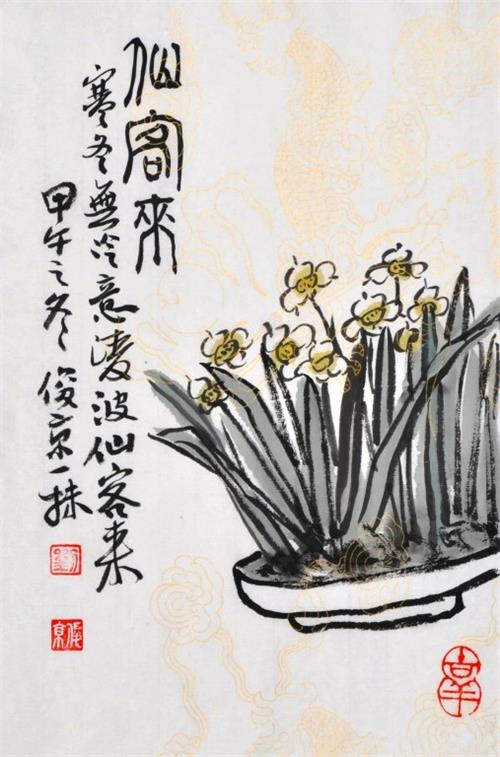 仙客来
寒冬無冷意凌波仙客来
甲午之冬俊京一抹